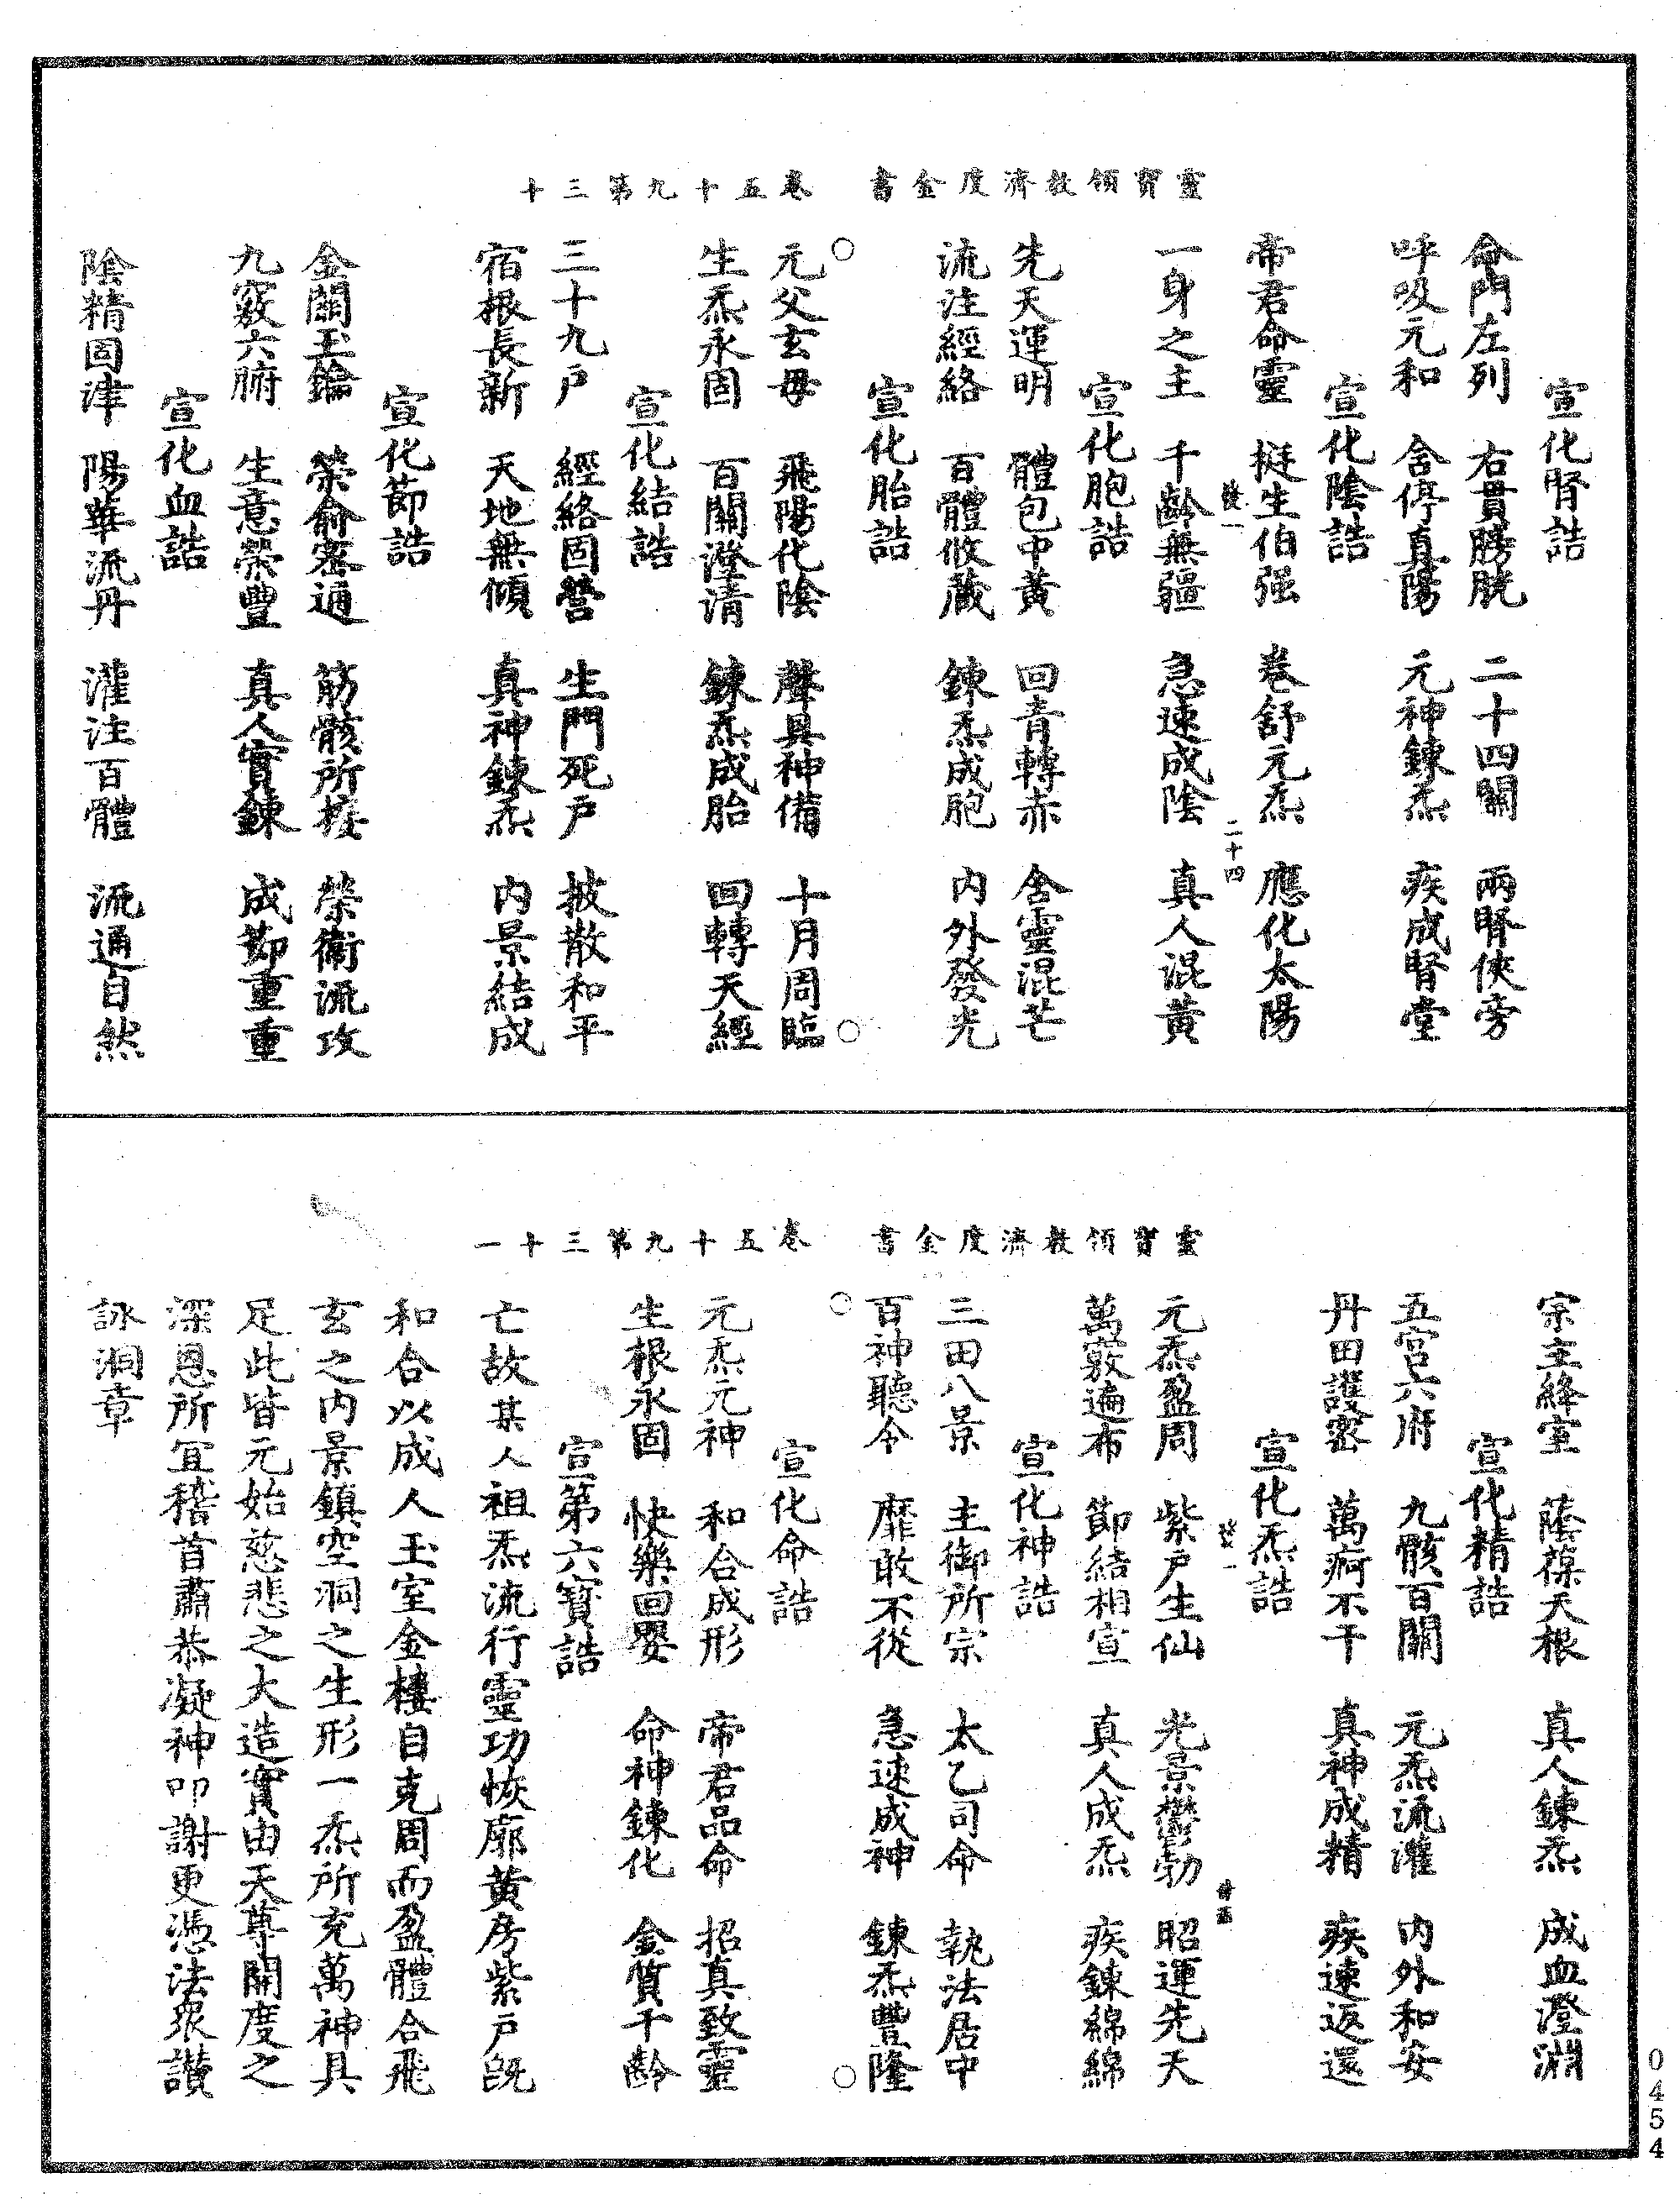 靈寶領教濟度金書　卷五十九第三十
宣化腎誥
命門左列　右貫膀胱　二十四關　兩腎俠旁
呼吸元和　含停真陽　元神鍊炁　疾成腎堂
宣化陰誥
帝君命靈　挺生伯强　卷舒元炁　應化太陽
二十四
一身之主　千齡無疆　急速成陰　真人混黄
宣化胞誥
先天運明　體包中黄　回青轉赤　含靈混芒
流注經絡　百體攸藏　鍊炁成胞　内外發光
宣化胎誥
○　○
元父玄母　飛陽化陰　聲具神備　十月周臨
生炁永固　百關澄清　鍊炁成胎　回轉天經
宣化結誥
三十九戸　經絡固營　生門死戸　披散和平
宿根長新　天地無傾　真神鍊炁　内景結成
宣化節誥
金關玉鑰　榮俞密通　筋骸所接　榮衛流攻
九竅六腑　生意榮豐　真人寳鍊　成節重重
宣化血誥
陰精固津　陽華流丹　灌注百體　流通自然
靈寶領教濟度金書　卷五十九第三十一
宗主絳室　蔭葆天根　真人鍊炁　成血澄淵
宣化精誥
五宫六府　九骸百關　元炁流灌　内外和安
丹田護密　萬痾不干　真神成精　疾速返還
宣化炁誥
元炁盈周　紫戸生仙　光景欝勃　昭運先天
萬竅遍布　節結相宣　真人成炁　疾鍊綿綿
宣化神誥
三田八景　主御所宗　太乙司命　執法居中
百神聽令　靡敢不從　急速成神　鍊炁豐隆
○　○
宣化命誥
元炁元神　和合成形　帝君品命　招真致靈
生根永固　快樂回嬰　命神鍊化　金質千齡
宣第六寳誥
亡故某人祖炁流行靈功恢廓黄房紫戸旣
和合以成人玉室金樓自克周而盈體合飛
玄之内景鎮空洞之生形一炁所充萬神具
足此皆元始慈悲之大造實由天尊開度之
深恩所宜稽首肅恭凝神叩謝更憑法衆讃
詠洞章
0454